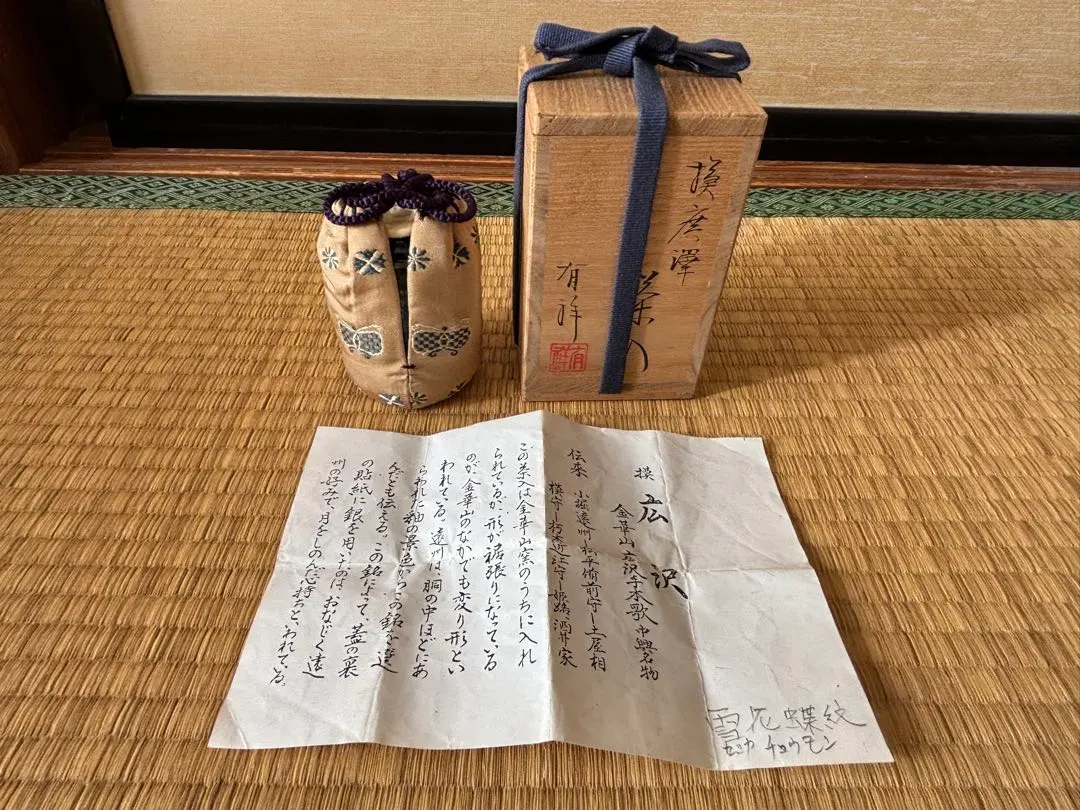 摸廣澤
茶入
有祥
摸 広沢
金華山 広沢手本歌 中興名物
伝来 小堀遠州―松平備前守―土屋相
模守―朽木近江守―姫路酒井家
この茶入は金華山窯のうちに入れ
られているが、形が裾張りになっている
のが金華山のなかでも変り形とい
われている。遠州は、胴の中ほどにあ
らわれた釉の景色からこの銘を選
んだとも伝える。この銘によって、蓋の裏
の貼紙に銀を用いたのは、おなじく遠
州の好みで、月をしのんだ心持ちと、いわれている。
雪花蝶紋
セッカ チョウモン